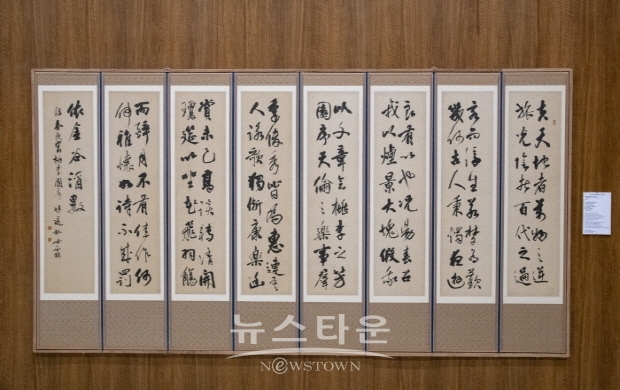 夫天地者萬物之逆
旅光陰者百代之過
客而浮生若夢為歡
幾何古人秉燭夜遊
良有以也況陽春召
我以煙景大塊假我
以文章會桃李之芳
園序天倫之樂事群
季俊秀皆為惠連吾
人詠歌獨慚康樂幽
賞未已高談轉清開
瓊筵以坐花飛羽觴
而醉月不有佳作何
伸雅懷如詩不成罰
依金谷酒數
春夜宴桃李園序
뉴스타운
NEWSTOWN